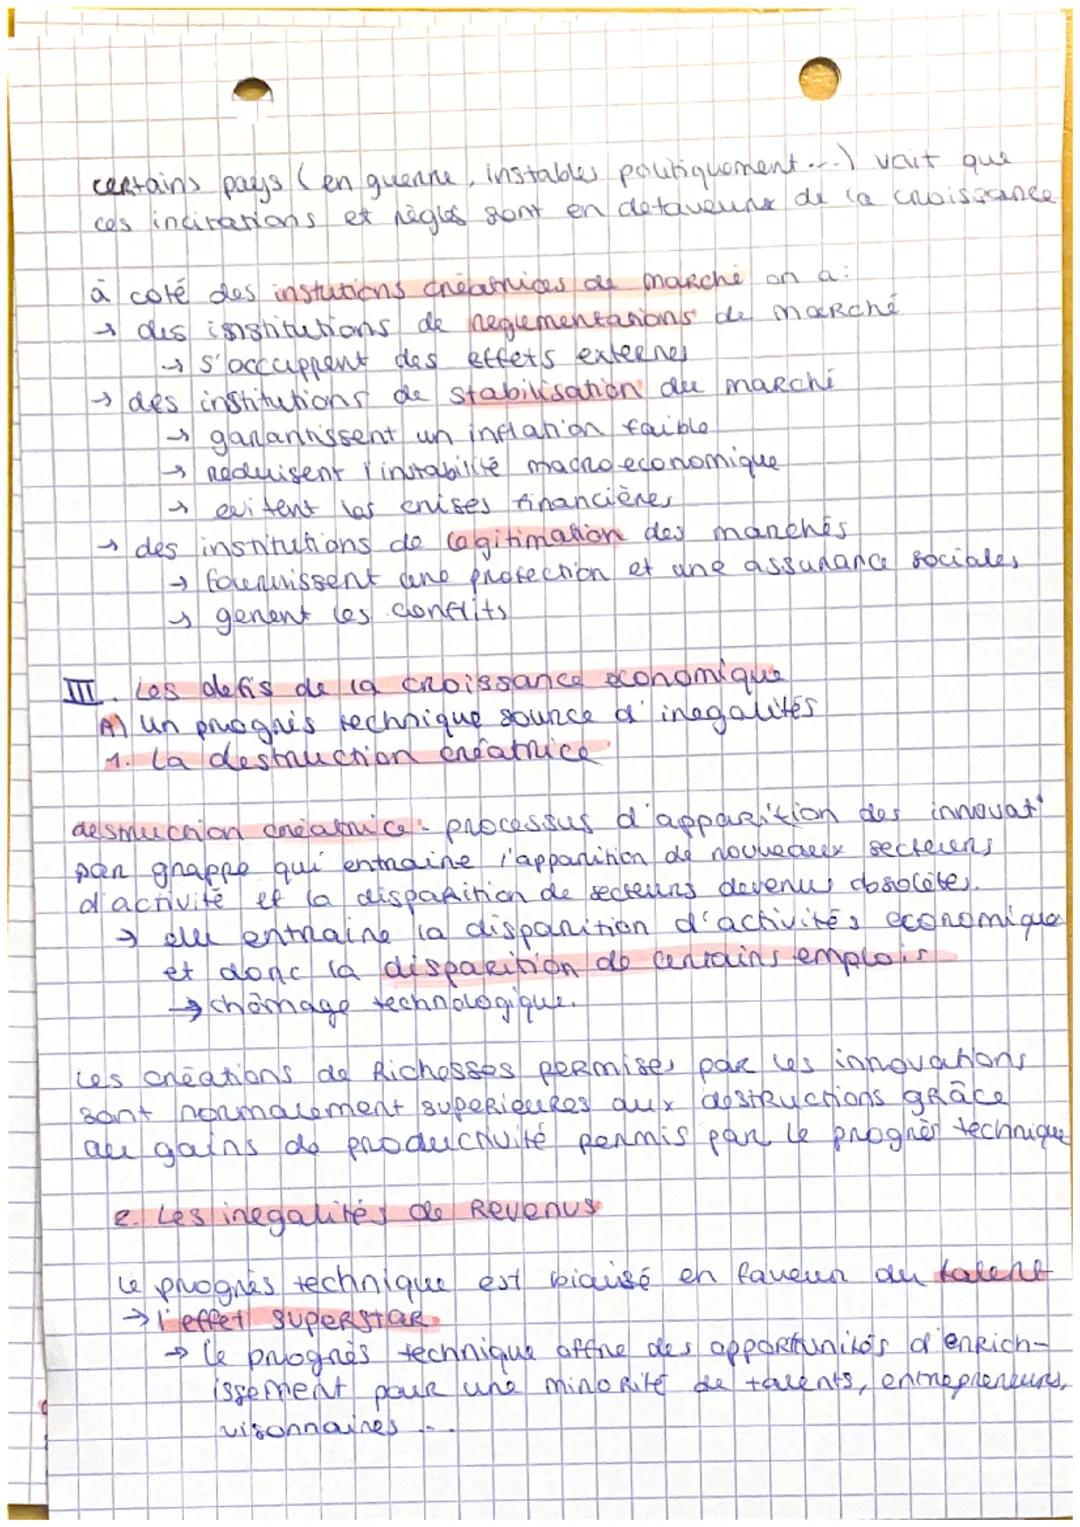 certains pays (en guerre, instables politiquement...) voit que
ces incitations et règles sont en defaveurs de la croissance
à coté des instutions créatrices de marché on a:
→ des institutions de reglementations de marché
→ s'occuppent des effets externes
→ des institutions de stabilisation du marché
→ garantissent un inflation faible
→ reduisent l'instabilité macroeconomique
→ evitent les crises financières
→ des institutions de legitimation des marchés
→ fournissent une protection et une assurance sociales
→ gerent les conflits
III. Les defis de la croissance economique
A) Un progrès technique source d'inegalités
1. La destruction créatrice
destruction créatrice: processus d'apparition des innovat°
par grappe qui entraine l'apparition de nouveaux secteurs
d'activité et la disparition de secteurs devenus obsolètes.
→ elle entraine la disparition d'activités economique
et donc la disparition de certains emplois
→ chômage technologique.
Les créations de Richesses permises par les innovations
sont normalement superieures aux destructions grâce
au gains de productivité permis par le progrès technique
2. Les inegalités de Revenus
Le progrès technique est biaisé en faveur du talent
→ l'effet superstar
→ le progrès technique offre des opportunités d'enrich-
issement pour une minorité de talents, entrepreneurs,
visonnaires ...